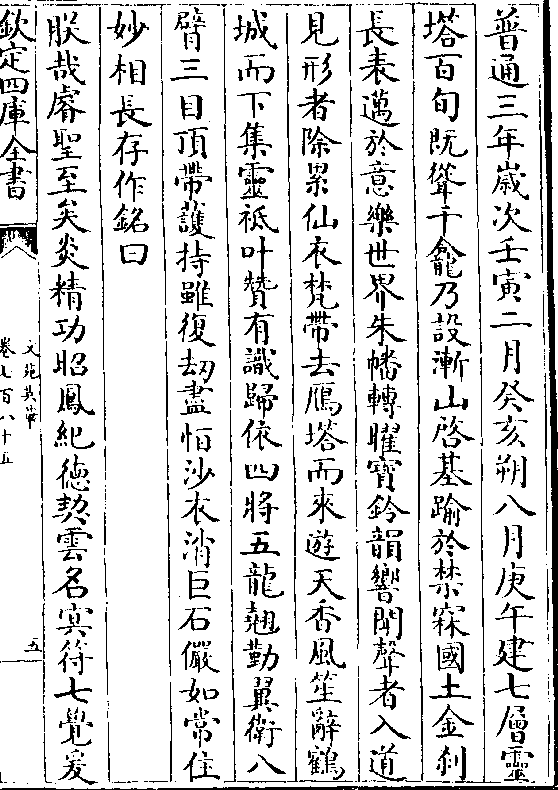 普通三年歲次壬寅二月癸亥朔八月庚午建七層靈
塔百旬既聳千龕乃設漸山啓基踰於禁寐國土金刹
長表邁於意樂世界朱幡轉曜寶鈴韻響聞聲者入道
見形者除累仙衣梵帶去鴈塔而來遊天香風笙辭鶴
城而下集靈祗叶贊有識歸依四將五龍翹勤翼衛八
臂三目頂帶護持雖復刧盡恒沙衣消巨石儼如常住
妙相長存作銘曰
朕哉睿聖至矣炎精功昭鳳紀德契雲名㝠符七覺爰
欽定四庫全書
文苑英華
卷七百八十五
五